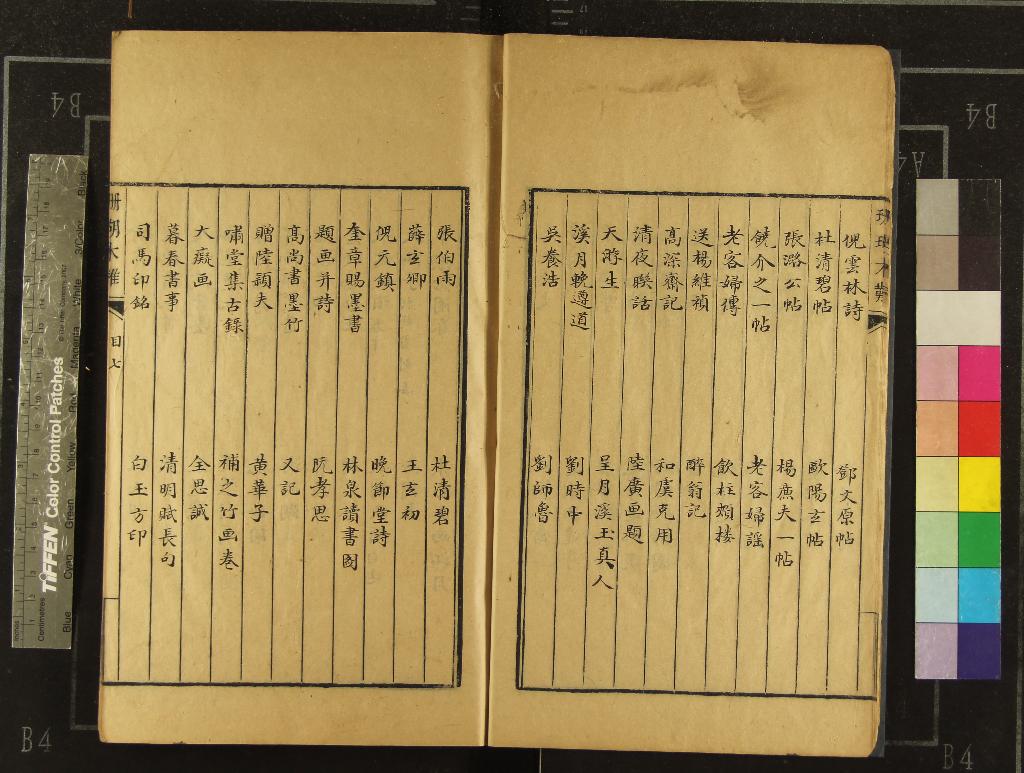 珊瑚木難
倪雲林詩
鄧文原帖
杜清碧帖
歐陽玄帖
張潞公帖
楊廉夫一帖
饒介之一帖
老客婦謠
老客婦傳
飲柱頰樓
送楊維禎
醉翁記
高深齋記
和虞克用
清夜聯話
陸廣画題
天游生
呈月溪玉真人
溪月軦遵道
劉時中
吳養浩
劉師魯
張伯雨
杜清碧
薛玄卿
王玄初
倪元鎮
晚節堂詩
奎章賜墨書
林泉讀書圖
題画并詩
阮孝思
高尚書墨竹
又記
贈陸頴夫
黃華子
嘯堂集古錄
補之竹画卷
大癡画
全思誠
暮春書事
清明賦長句
司馬印銘
白玉方印
珊瑚木難
目七
B4
B4
A4
B4
B4
TIFFEN Color Control Patches
Inches
Centimetres
Blue
Cyan
Green
Yellow
Red
Magenta
White
3/Color
Black